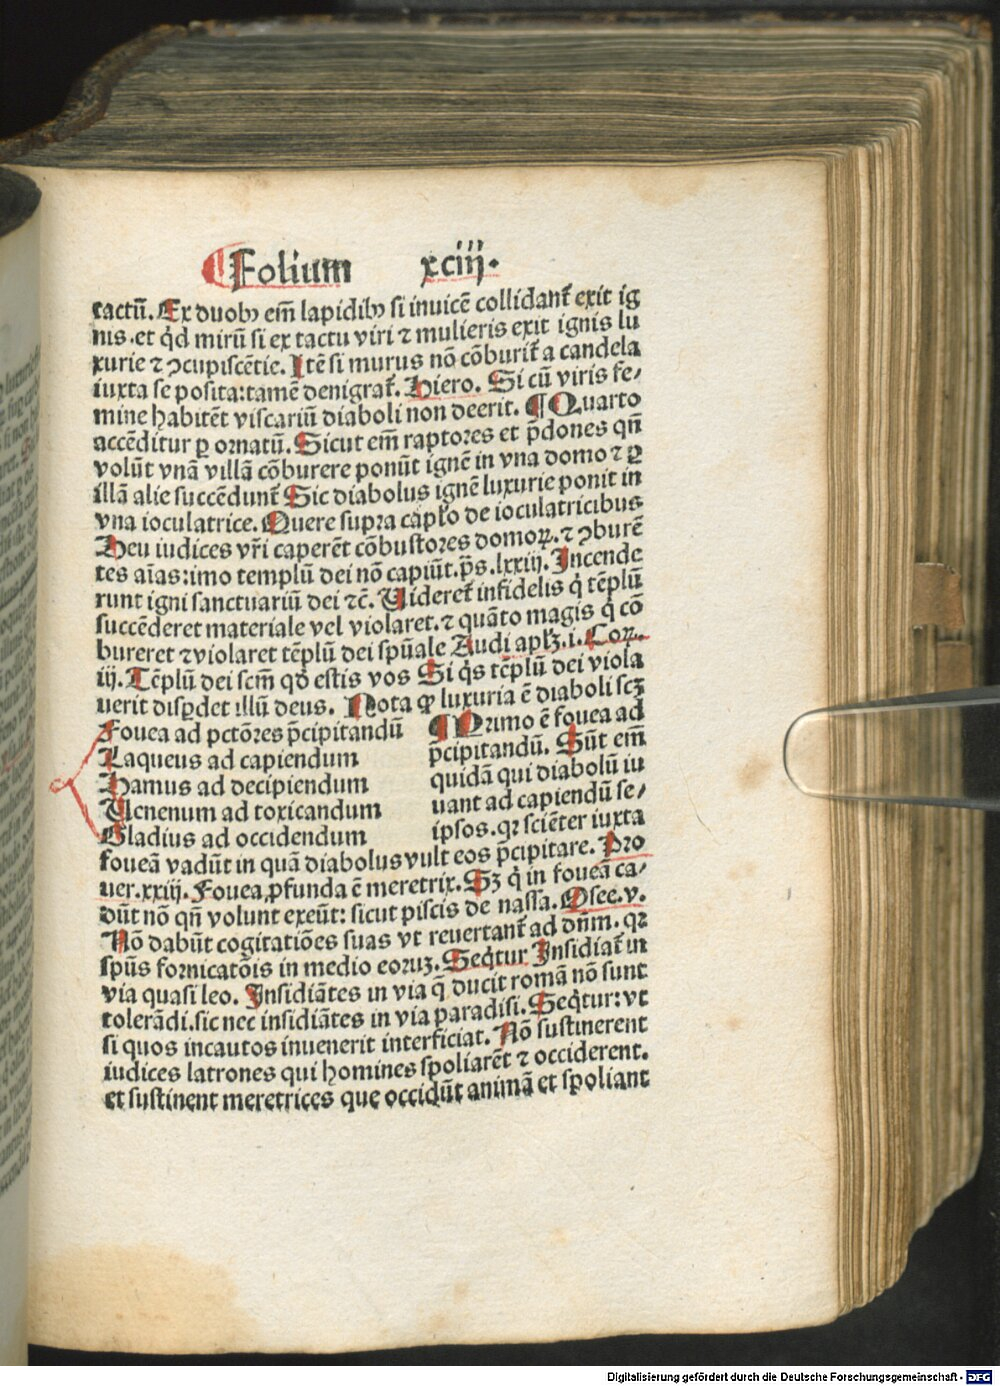 Folium xciij.
tactū. Ex duobꝰ em̄ lapidibꝰ si inuicē collidant᷑ exit ig
nis. et qͥd mirū si ex tactu viri ⁊ mulieris exit ignis lu
xurie ⁊ ↄcupiscētie. Itē si murus nō cōburit᷑ a candela
iuxta se posita: tamē denigrat᷑. Hiero. Si cū viris fe-
mine habitēt viscariū diaboli non deerit. ¶ Quarto
accēditur ꝑ ornatū. Sicut em̄ raptores et p̄dones qn̄
volūt vnā villā cōburere ponūt ignē in vna domo ⁊ ꝑ
illā alie succēdunt᷑ Sic diabolus ignē luxurie ponit in
vna ioculatrice. Quere supra capl̓o de ioculatricibus
Heu iudices vr̄i caperēt cōbustores domoꝝ. ⁊ ↄburē
tes aīas: imo templū dei nō capiūt. ps̄. lxxiij. Incende
runt igni sanctuariū dei ⁊c̄. Uideret᷑ infidelis qͥ tēplū
succēderet materiale vel violaret. ⁊ quāto magis qͥ cō
bureret ⁊ violaret tēplū dei spūale Audi apl̓ꝫ. i. Coꝝ.
iij. Tēplū dei scm̄ qd̓ estis vos Si qͥs tēplū dei viola
uerit disꝑdet illū deus. Nota ꝙ luxuria ē diaboli scꝫ
Fouea ad pctōres p̄cipitandū ¶ Primo ē fouea ad
Laqueus ad capiendum p̄cipitandū. Sūt em̄
Hamus ad decipiendum quidā qui diabolū iu
Uenenum ad toxicandum uant ad capiendū se-
Gladius ad occidendum ipsos. qꝛ sciēter iuxta
foueā vadūt in quā diabolus vult eos p̄cipitare. Pro
uer. xxiij. Fouea ꝓfunda ē meretrix. Sꝫ qͥ in foueā ca-
dūt nō qn̄ volunt exeūt: sicut piscis de nassa. Osee. v.
Nō dabūt cogitatiōes suas vt reuertant᷑ ad dn̄m. qꝛ
spūs fornicatōis in medio eoruꝫ. Seqͥtur Insidiat᷑ in
via quasi leo. Insidiātes in via q̄ ducit romā nō sunt
tolerādi. sic nec insidiātes in via paradisi. Seqͥtur: vt
si quos incautos inuenerit interficiat. Nō sustinerent
iudices latrones qui homines spoliarēt ⁊ occiderent.
et sustinent meretrices que occidūt animā et spoliant
Digitalisierung gefördert durch die Deutsche Forschungsgemeinschaft - DFG